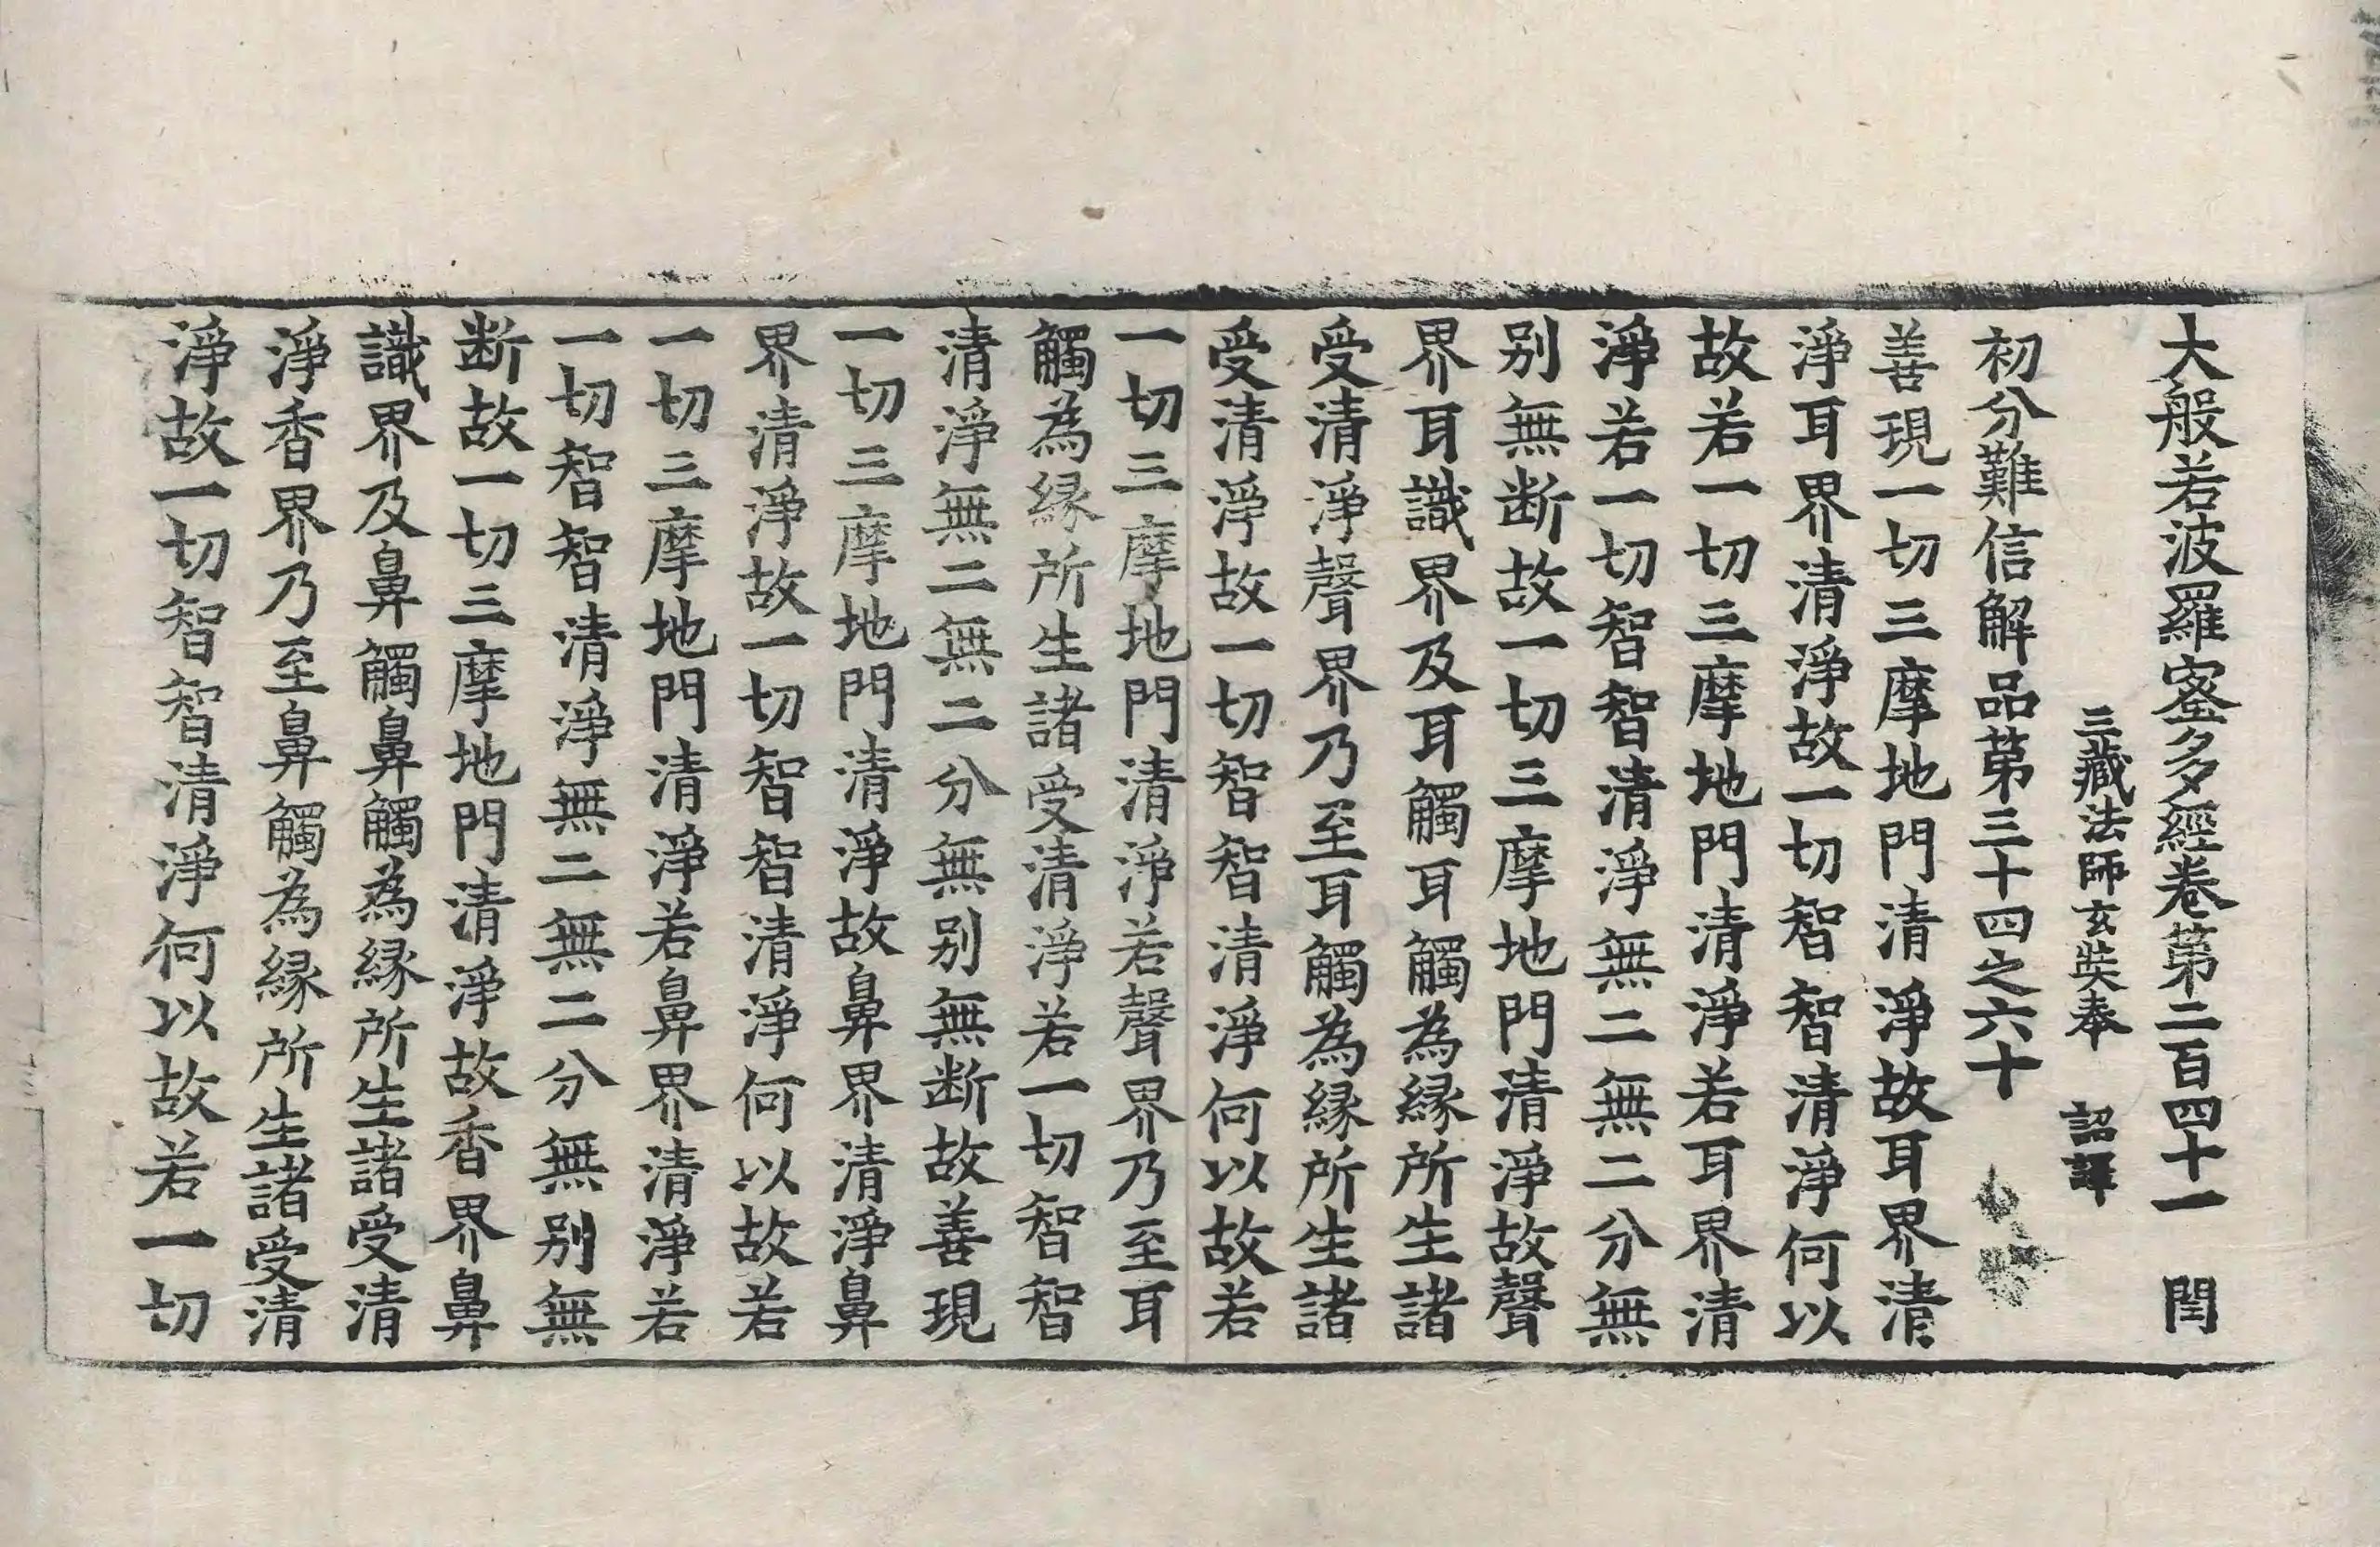 大般若波羅蜜多經卷第二百四十一　閏
三藏法師玄奘奉　詔譯
初分難信解品第三十四之六十
善現一切三摩地門清淨故耳界清
淨耳界清淨故一切智智清淨何以
故若一切三摩地門清淨若耳界清
淨若一切智智清淨無二無二分無
别無断故一切三摩地門清淨故聲
界耳識界及耳觸耳觸為縁所生諸
受清淨聲界乃至耳觸為縁所生諸
受清淨故一切智智清淨何以故若
一切三摩地門清淨若聲界乃至耳
觸為縁所生諸受清淨若一切智智
清淨無二無二分無别無断故善現
一切三摩地門清淨故鼻界清淨鼻
界清淨故一切智智清淨何以故若
一切三摩地門清淨若鼻界清淨若
一切智智清淨無二無二分無别無
断故一切三摩地門清淨故香界鼻
識界及鼻觸鼻觸為縁所生諸受清
淨香界乃至鼻觸為縁所生諸受清
淨故一切智智清淨何以故若一切